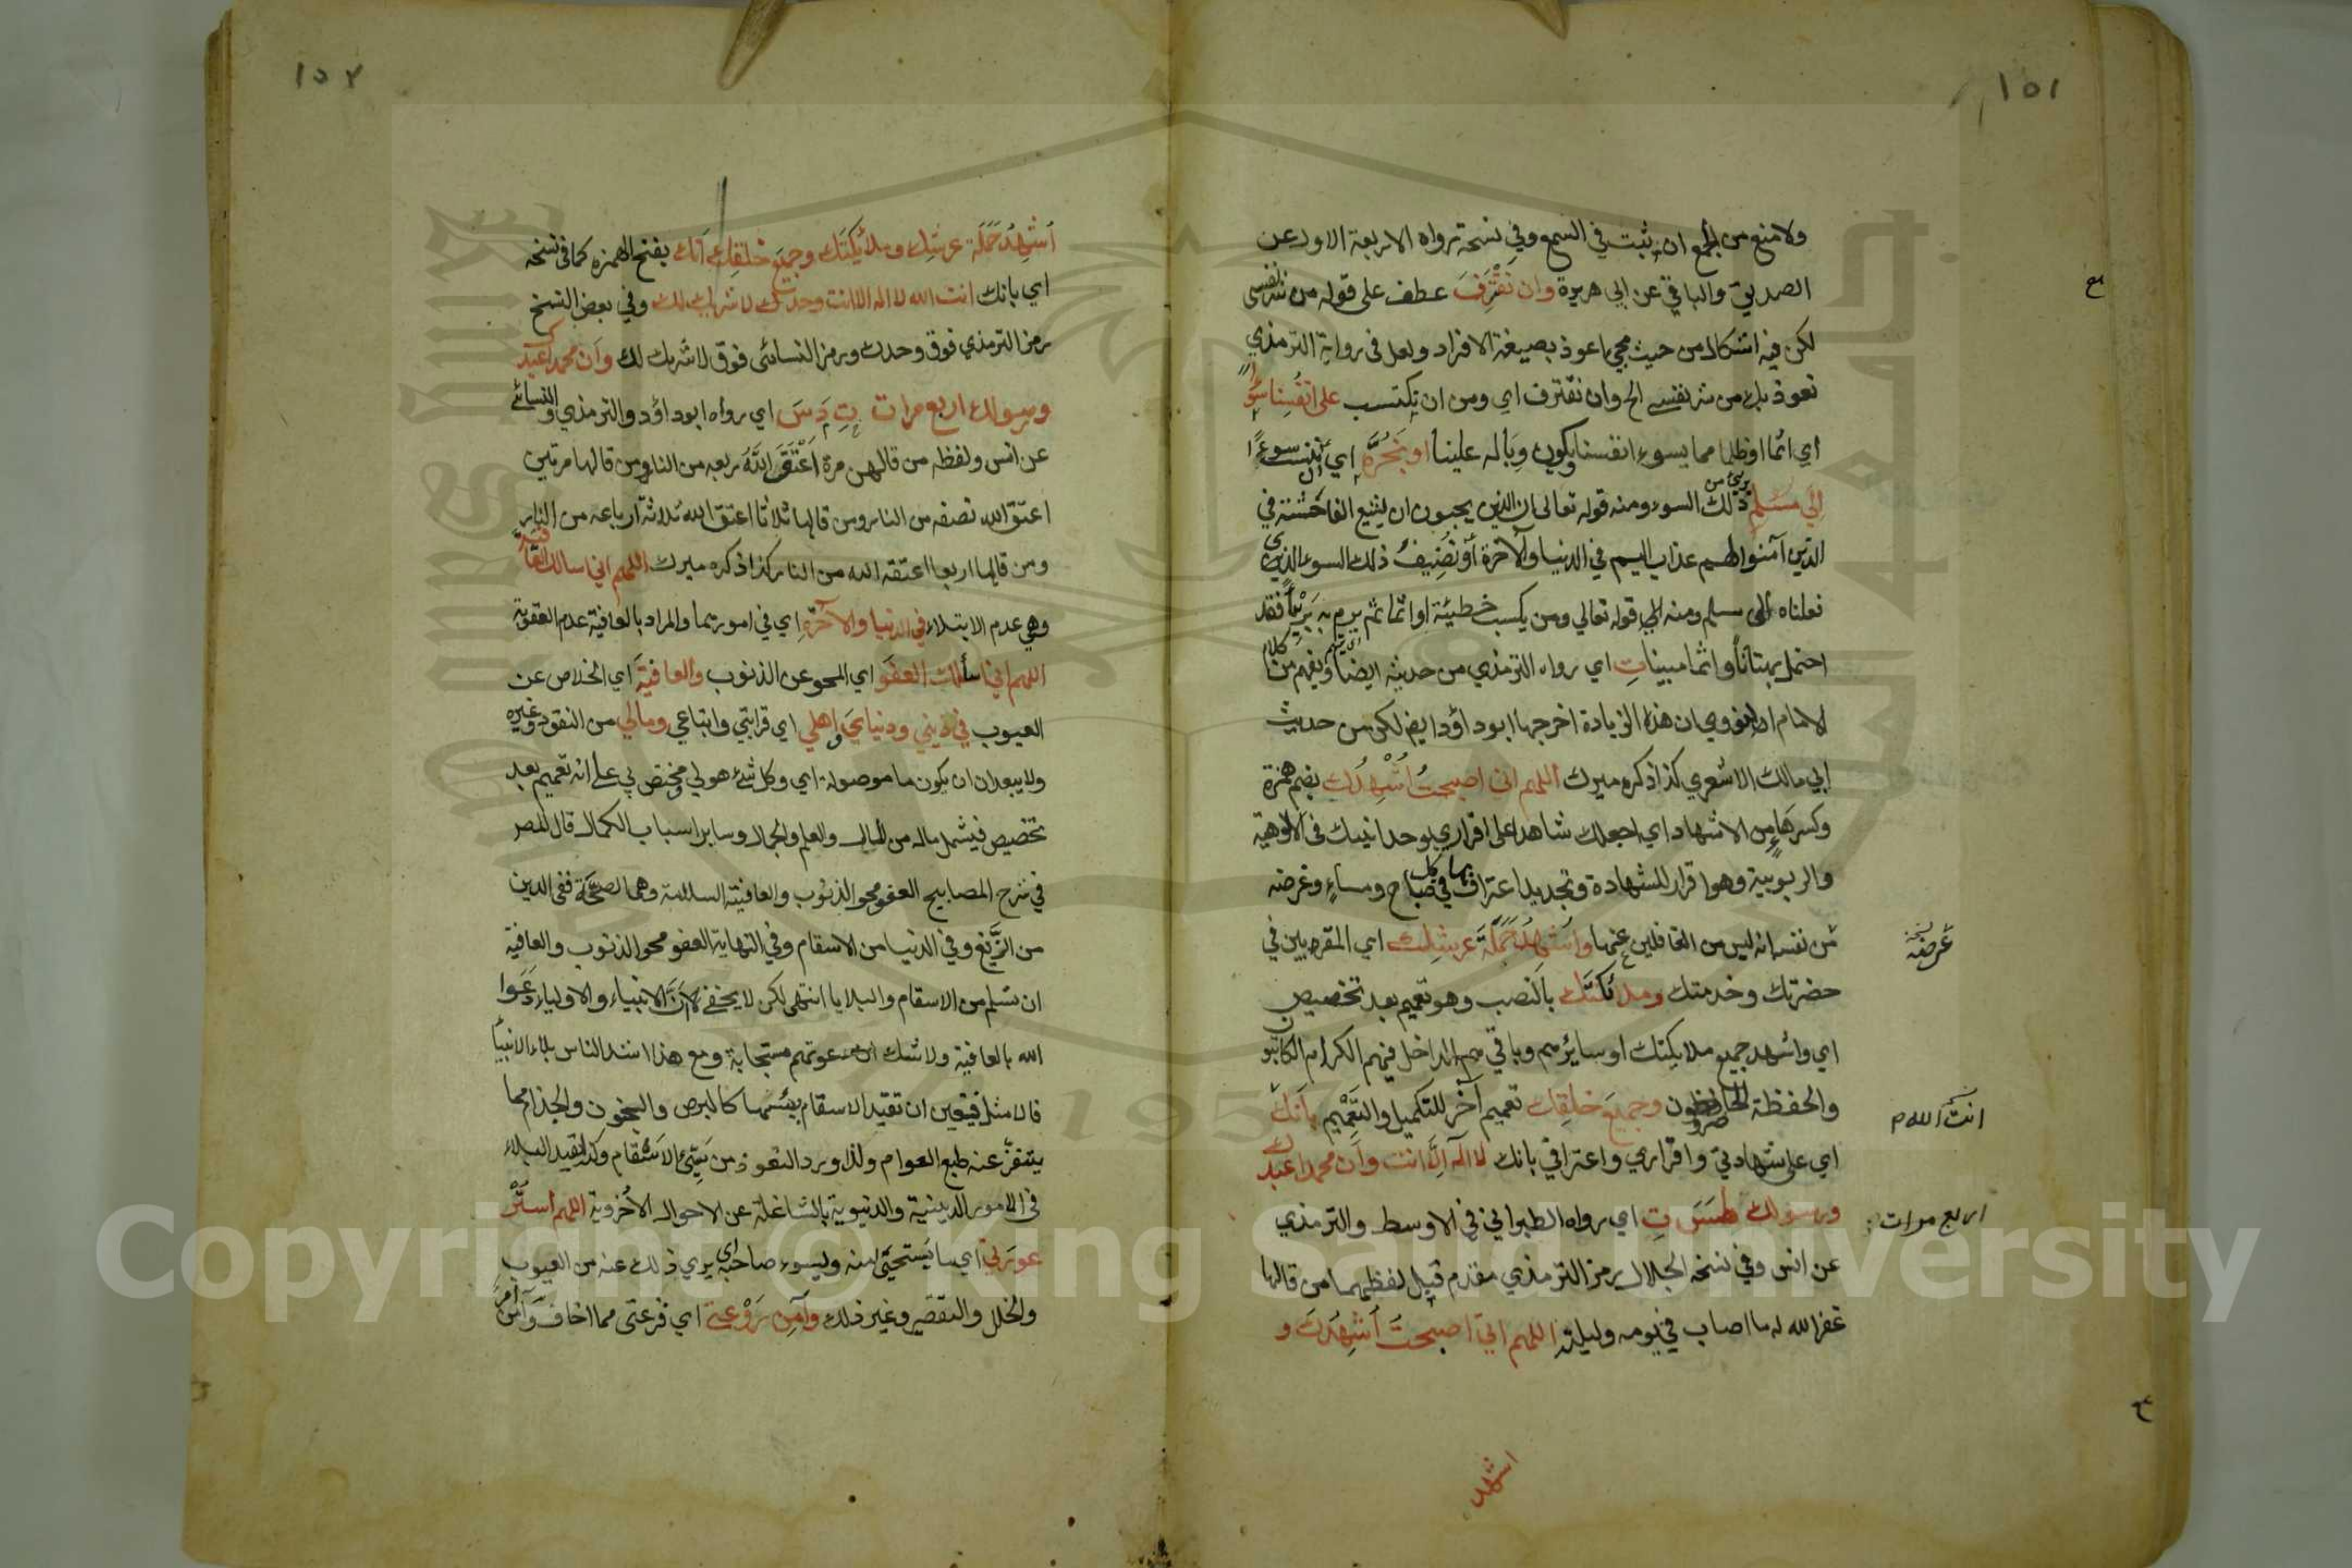 ١٥١
ولا منع من الجمع ان ثبت في السمع وفي نسخة رواه الاربعة الاول عن
الصديق والباقي عن ابي هريرة وان نقترف عطف على قوله من شر نفسي
لكن فيه اشكال من حيث مجي اعوذ بصيغة الافراد ولعل في رواية الترمذي
نعوذ بك من شر نفسي الخ وان نقترف اي ومن ان نكتسب على انفسنا سوءا
اي اثما او ظلما مما يسوء انفسنا ويكون وباله علينا او نجره اي ننسب سوءا
الى مسلم بريء من ذلك السوء ومنه قوله تعالى ان الذين يحبون ان تشيع الفاحشة في
الذين آمنوا لهم عذاب اليم في الدنيا والآخرة أو نضيف ذلك السوء الذي
فعلناه الى مسلم ومنه قوله تعالي ومن يكسب خطيئة او اثما ثم يرم به بريئا فقد
احتمل بهتانا واثما مبينا ت اي رواه الترمذي من حديثه ايضا ويفهم من كلام
الامام النووي ان هذه الزيادة اخرجها ابو داؤد ايض لكن من حديث
ابي مالك الاشعري كذا ذكره ميرك اللهم اني اصبحت أشهدك بضم همزة
وكسر هاء من الاشهاد اي اجعلك شاهدا على اقراري بوحدانيتك في الالوهية
والربوبية وهو اقرار للشهادة وتجديد اعتراف بها في كل صباح ومساء وغرضه
من نفسه انه ليس من الغافلين عنها واشهد حملة عرشك اي المقربين في
حضرتك وخدمتك وملائكتك بالنصب وهو تعميم بعد تخصيص
اي واشهد جميع ملايكتك او سائرهم وباقيهم الداخل فيهم الكرام الكاتبون
والحفظة الحاضرون وجميع خلقك تعميم آخر للتكميل والتعميم بانك
اي على شهادتي واقراري واعترافي بانك لا اله الا انت وان محمدا عبدك
ورسولك طس ت اي رواه الطبراني في الاوسط والترمذي
عن انس وفي نسخة الجلال رمز الترمذي مقدم قيل لفظهما من قالها
غفر الله له ما اصاب في يومه وليلته اللهم اني اصبحت أشهدك و
اشهد
غرضه نسخة
انت الله م
اربع مرات
١٥٢
أشهد حملة عرشك وملائكتك وجميع خلقك أنك بفتح الهمزه كما في نسخه
اي بانك انت الله لا اله الا انت وحدك لا شريك لك وفي بعض النسخ
رمز الترمذي فوق وحدك ورمز النسائى فوق لا شريك لك وان محمدا عبدك
ورسولك اربع مرات ت د س اي رواه ابو داؤد والترمذي والنسائي
عن انس ولفظه من قالهن مرة اعتق الله ربعه من النار ومن قالها مرتين
اعتق الله نصفه من النار ومن قالها ثلاثا اعتق الله ثلاثة ارباعه من النار
ومن قالها اربعا اعتقه الله من النار كذا ذكره ميرك اللهم اني اسالك العافية
وهي عدم الابتلاء في الدنيا والآخرة اي في امورهما والمراد بالعافية عدم العقوبة
اللهم اني اسألك العفو اي المحو عن الذنوب والعافية اي الخلاص عن
العيوب في ديني ودنياي واهلي اي قرابتي واتباعي ومالي من النقود وغيره
ولا يبعد ان يكون ما موصولة اي وكل شئ هو لي ومختص بي على انه تعميم بعد
تخصيص فيشمل ماله من المال والعلم والجمال وساير اسباب الكمال قال المصر
في شرح المصابيح العفو محو الذنوب والعافية السلامة وهما الصحة ففى الدين
من الزيغ وفي الدنيا من الاسقام وفي النهاية العفو محو الذنوب والعافية
ان تسلم من الاسقام والبلايا انتهى لكن لا يخفى لان الانبياء والاولياء دعوا
الله بالعافية ولا شك ان دعوتهم مستجابة ومع هذا اشد الناس بلاء الانبيا
فالامثل فيتعين ان تقيد الاسقام بسيئها كالبرص والجنون والجذام مما
يتنفر عنه طبع العوام ولذا ورد التعوذ من سيئ الاسقام وكذا تقييد البلاء
فى الامور الدينية والدنيوية بالشاغلة عن الاحوال الأخروية اللهم استر
عورتي اي ما يستحيى منه ويسوء صاحبه اي يرى ذلك عنه من العيوب
والخلل والتقصير وغير ذلك وآمن روعتي اي فزعتى مما اخاف وآمن
Copyright © King Saud University
1957